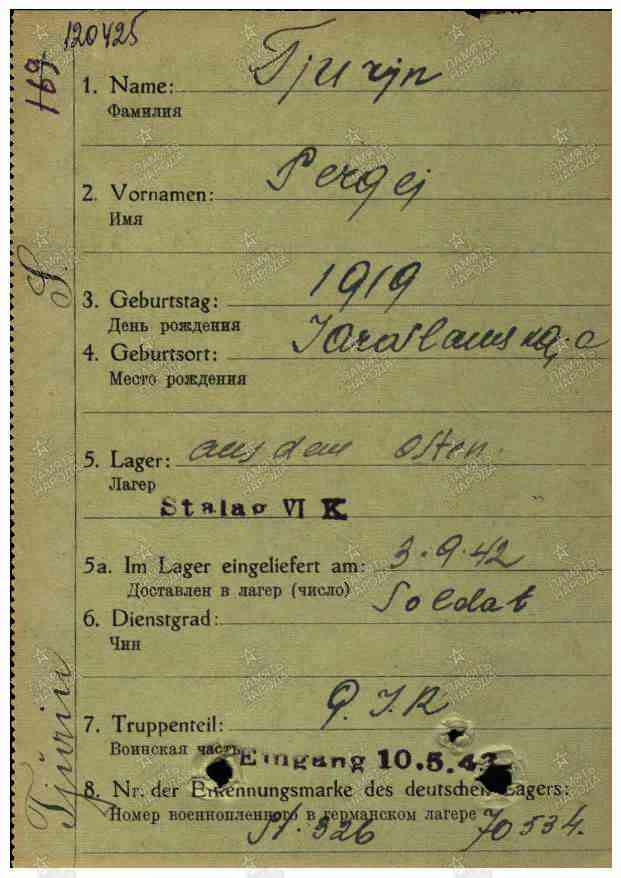 120425
169.
1. Name: Tjurijn
Фамилия
2. Vornamen: Sergej
Имя
S.
1919
3. Geburtstag:
День рождения
4. Geburtsort: Jaroslauskaja
Место рождения
5. Lager: aus dem Osten.
Лагер
Stalag VI K
5a. Im Lager eingeliefert am: 3.9.42
Доставлен в лагер (число)
6. Dienstgrad: Soldat
Чин
Tjurin
7. Truppenteil: J.R
Воинская часть
Eingang 10.5.43
8. Nr. der Erkennungsmarke des deutschen Lagers:
Номер военнопленного в германском лагере
St. 326 70534.
ПАМЯТЬ НАРОДА